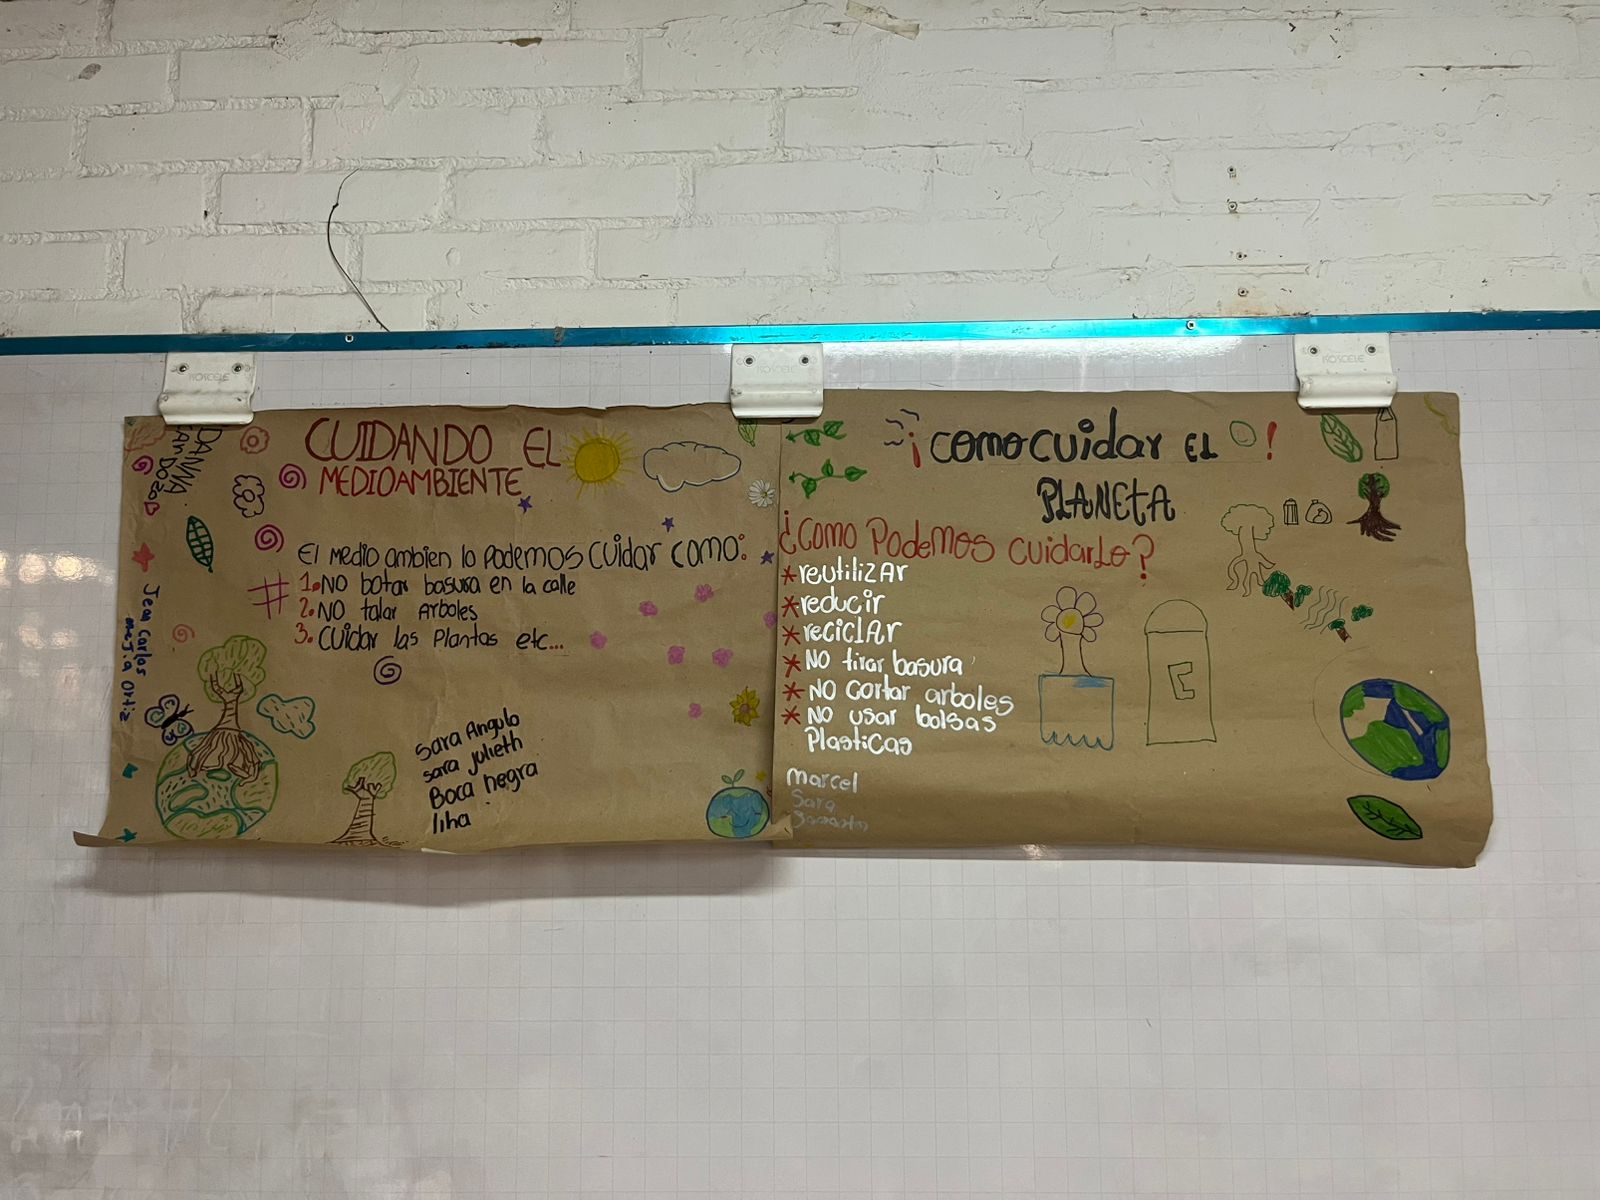 ISOSCELE
ISOSCELE
ISOSCELE
DANNA
CARDOZO
Jean Carlos
mejia Ortiz
CUIDANDO EL
MEDIOAMBIENTE
El medio ambien lo podemos cuidar como:
# 1. NO botar basura en la calle
2. NO talar Arboles
3. Cuidar las Plantas etc...
Sara Angulo
sara julieth
Boca negra
¡COMO cuidar EL !
PLANETA
¿COMO PODEMOS cuidarlo?
* reutilizAr
* reducir
* reciclAr
* NO tirar basura
* NO cortar arboles
* NO usar bolsas
Plasticas
Marcel
Sara